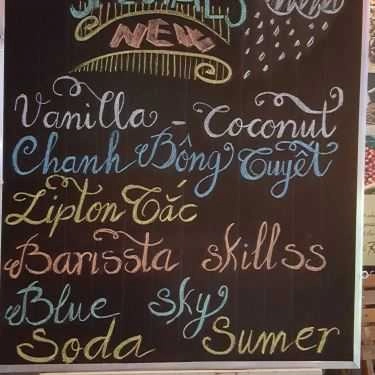 NEW
Vanilla - Coconut
Chanh Bông Tuyết
Lipton Tắc
Barissta skillss
Blue sky
Soda Sumer